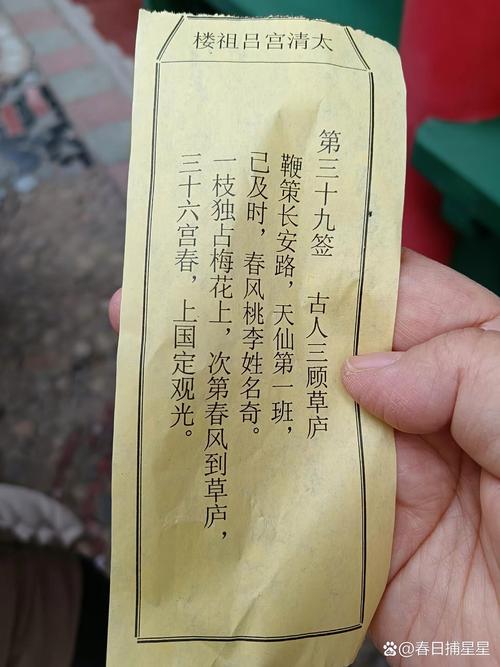 太清宫吕祖楼
第三十九签 古人三顾草庐
鞭策长安路，天仙第一班，
已及时，春风桃李姓名奇。
一枝独占梅花上，次第春风到草庐，
三十六宫春，上国定观光。
@春日捕星星